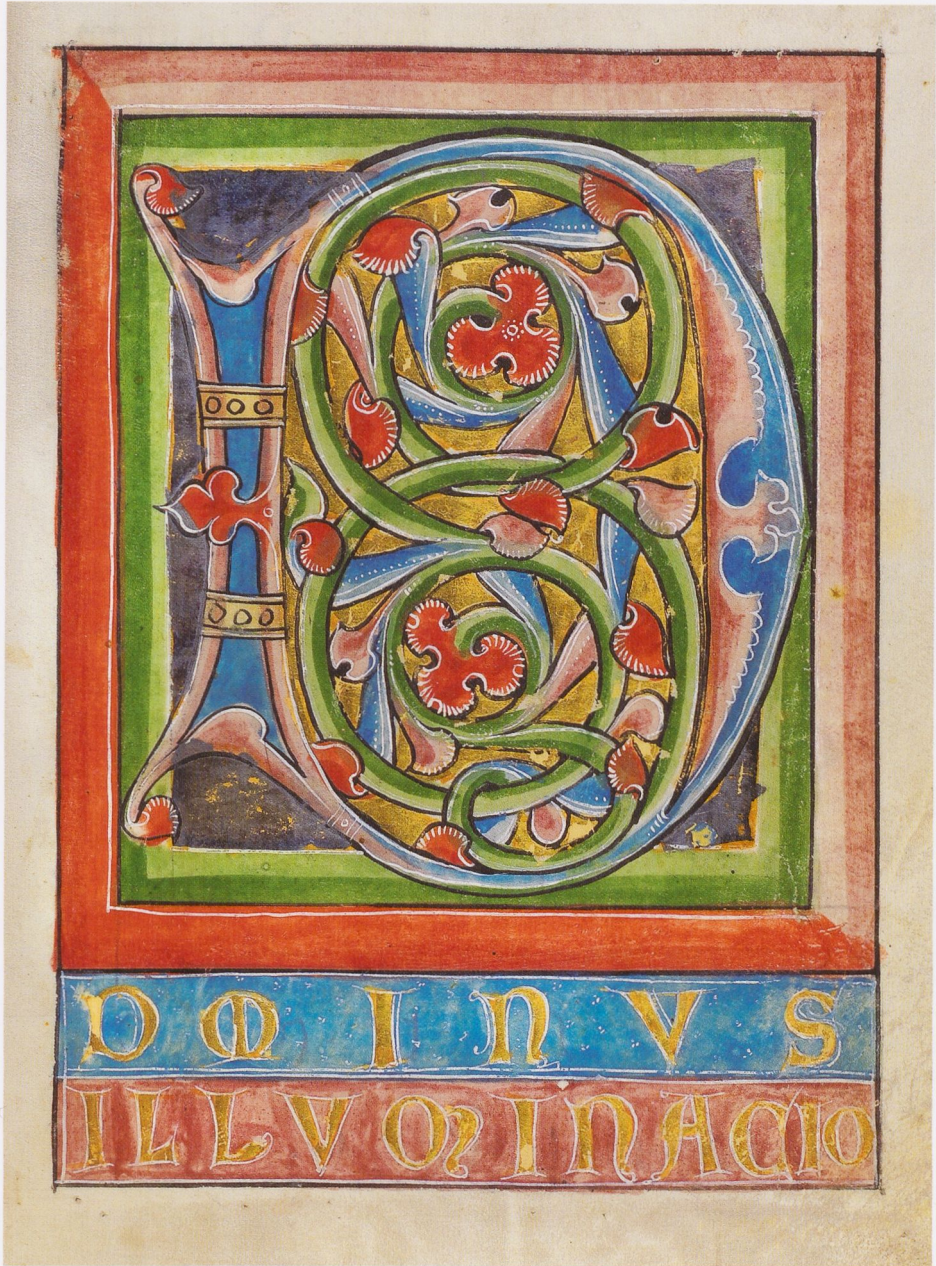 D
DOMINVS
ILLVMINACIO